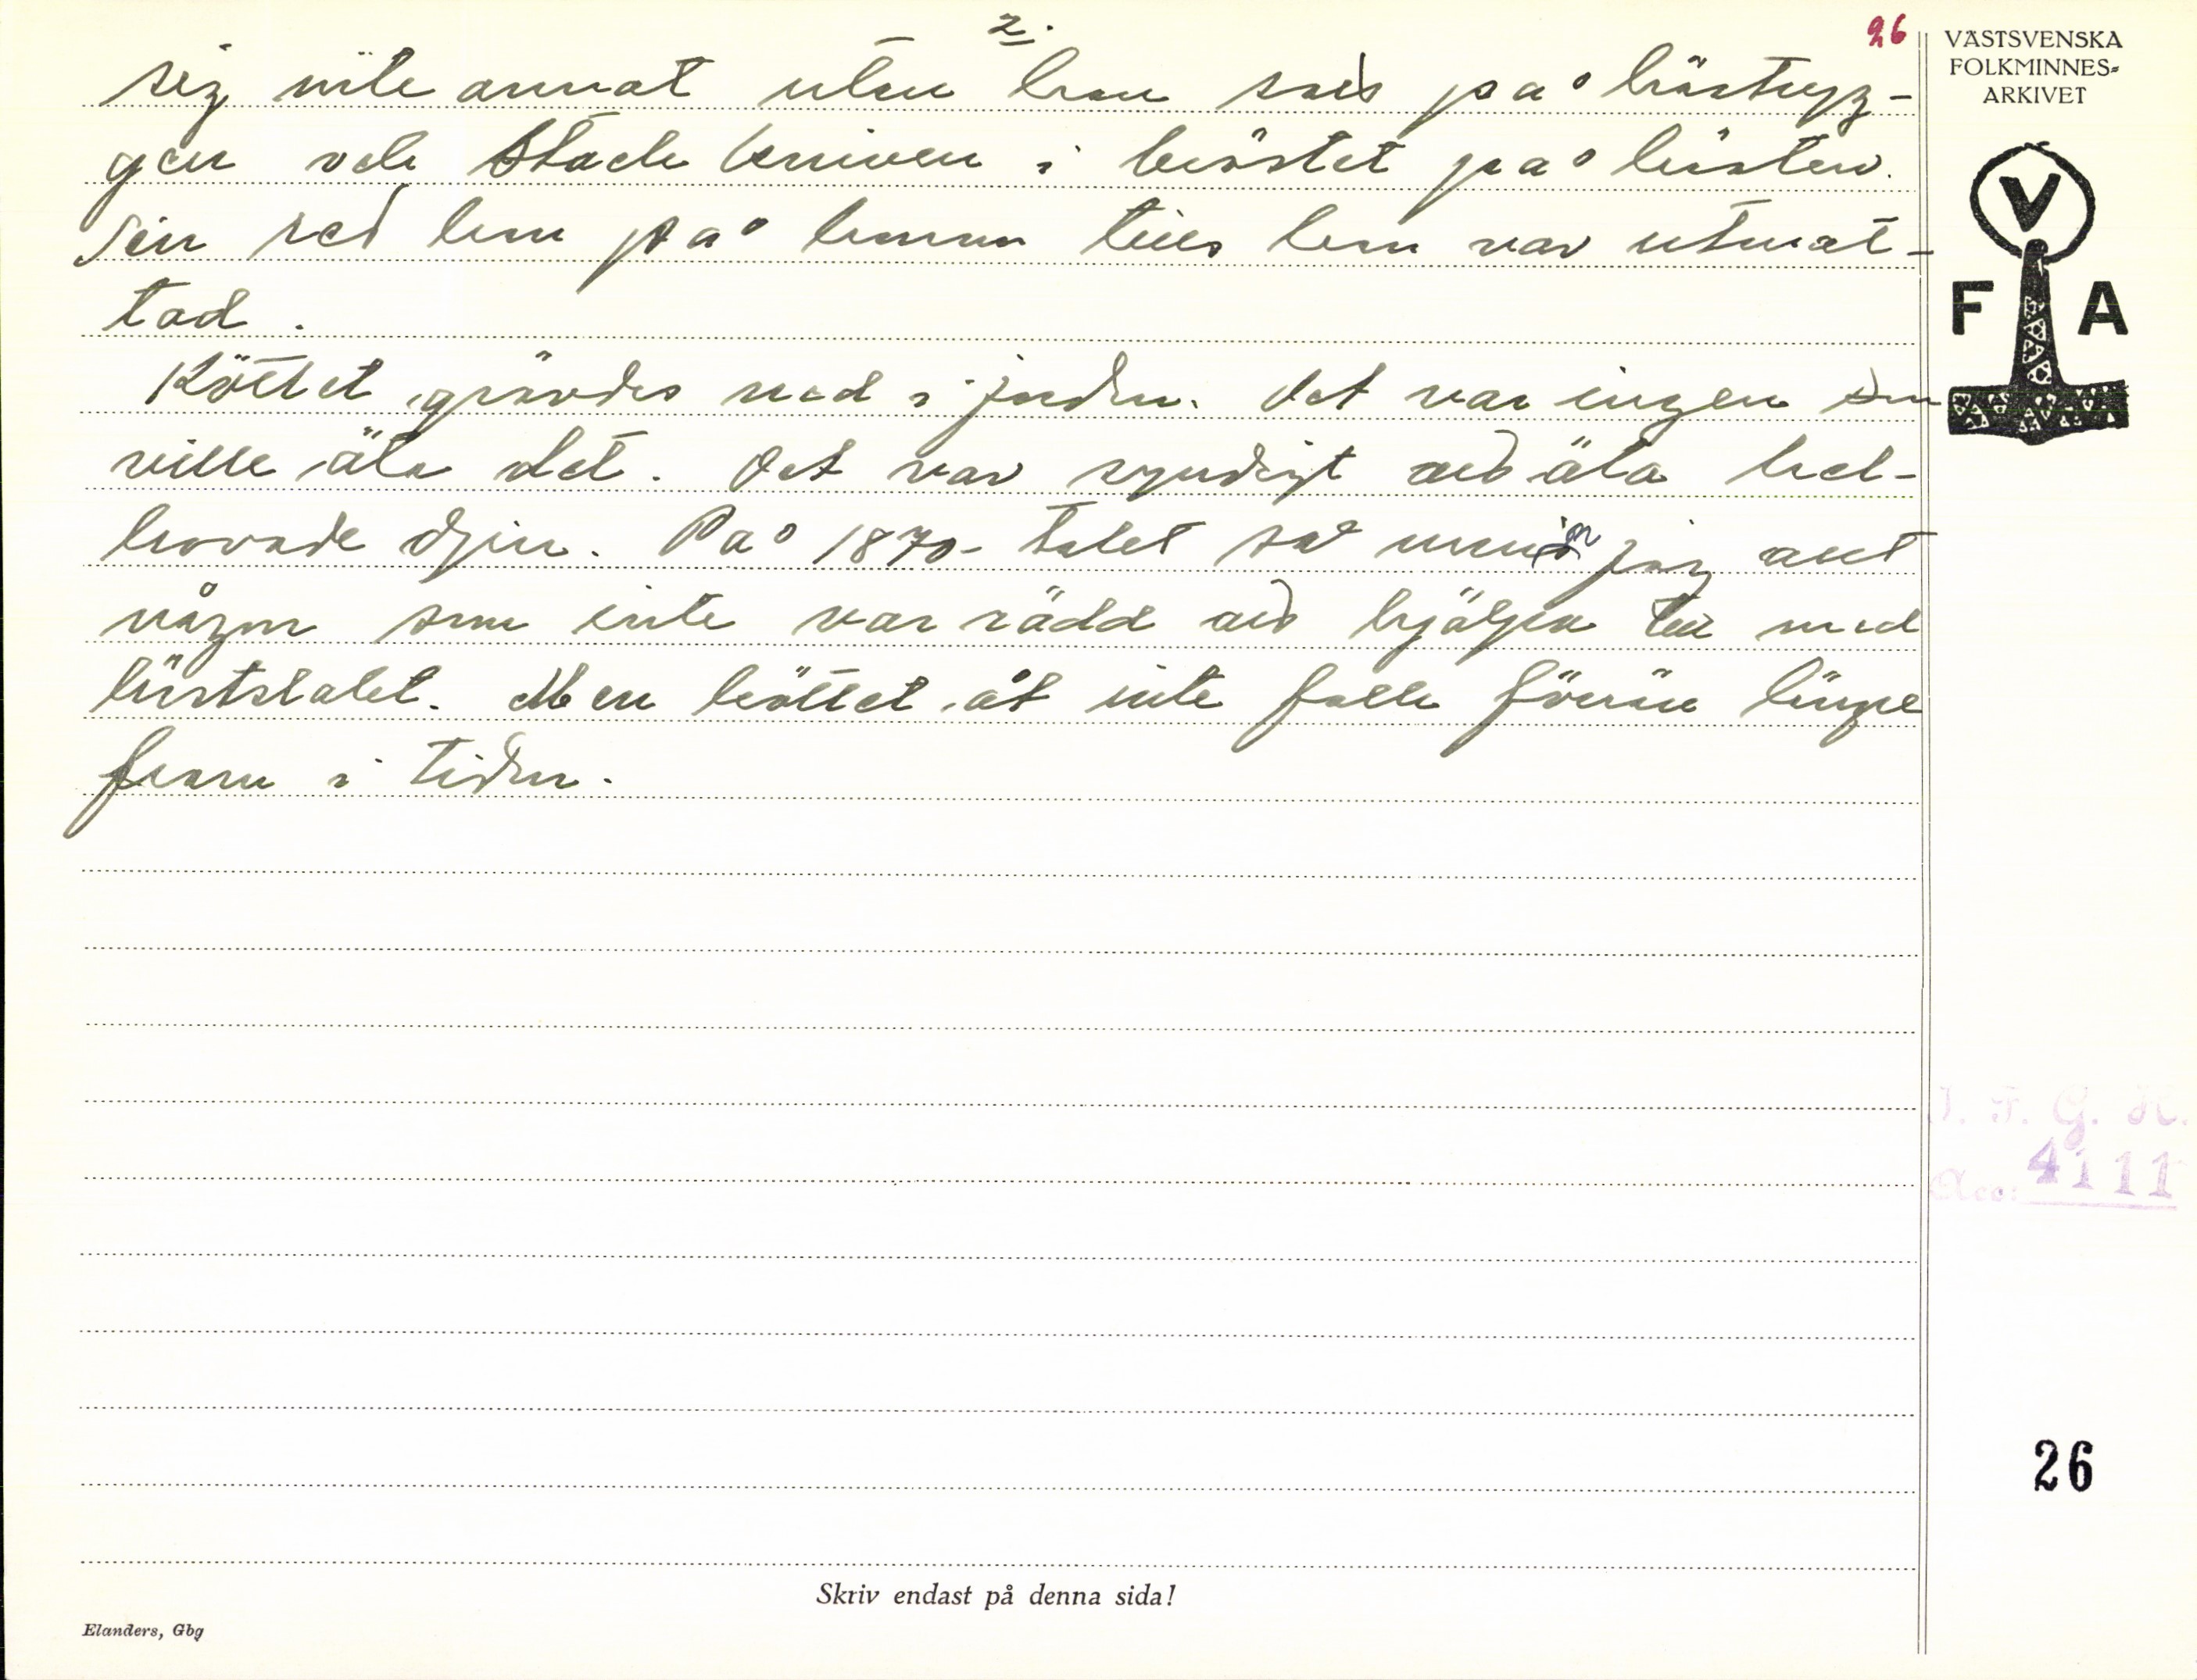 2.
26
sig inte annat utan han satt på hästryg-
gen och stack kniven i bröstet på hästen.
Sen red han på honom tills han var utmat-
tad.
Köttet grävdes ned i jorden. Det var ingen som
ville äta det. Det var syndigt att äta hel-
hovade djur. På 1870-talet så minns jag att
någon som inte var rädd att hjälpa till med
hästslakt. Men köttet åt inte folk förrän längre
fram i tiden.
VÄSTSVENSKA
FOLKMINNES-
ARKIVET
V
F A
I. F. G. H.
Acc: 4111
26
Skriv endast på denna sida!
Elanders, Gbg